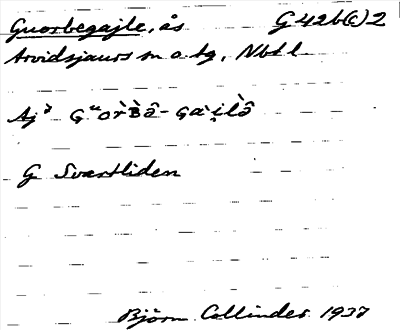 Guorbegajle, ås G 42b(c)2
Arvidsjaurs sn o. tg, Nbtl
Aj
G Svartliden
Björn Collinder 1937